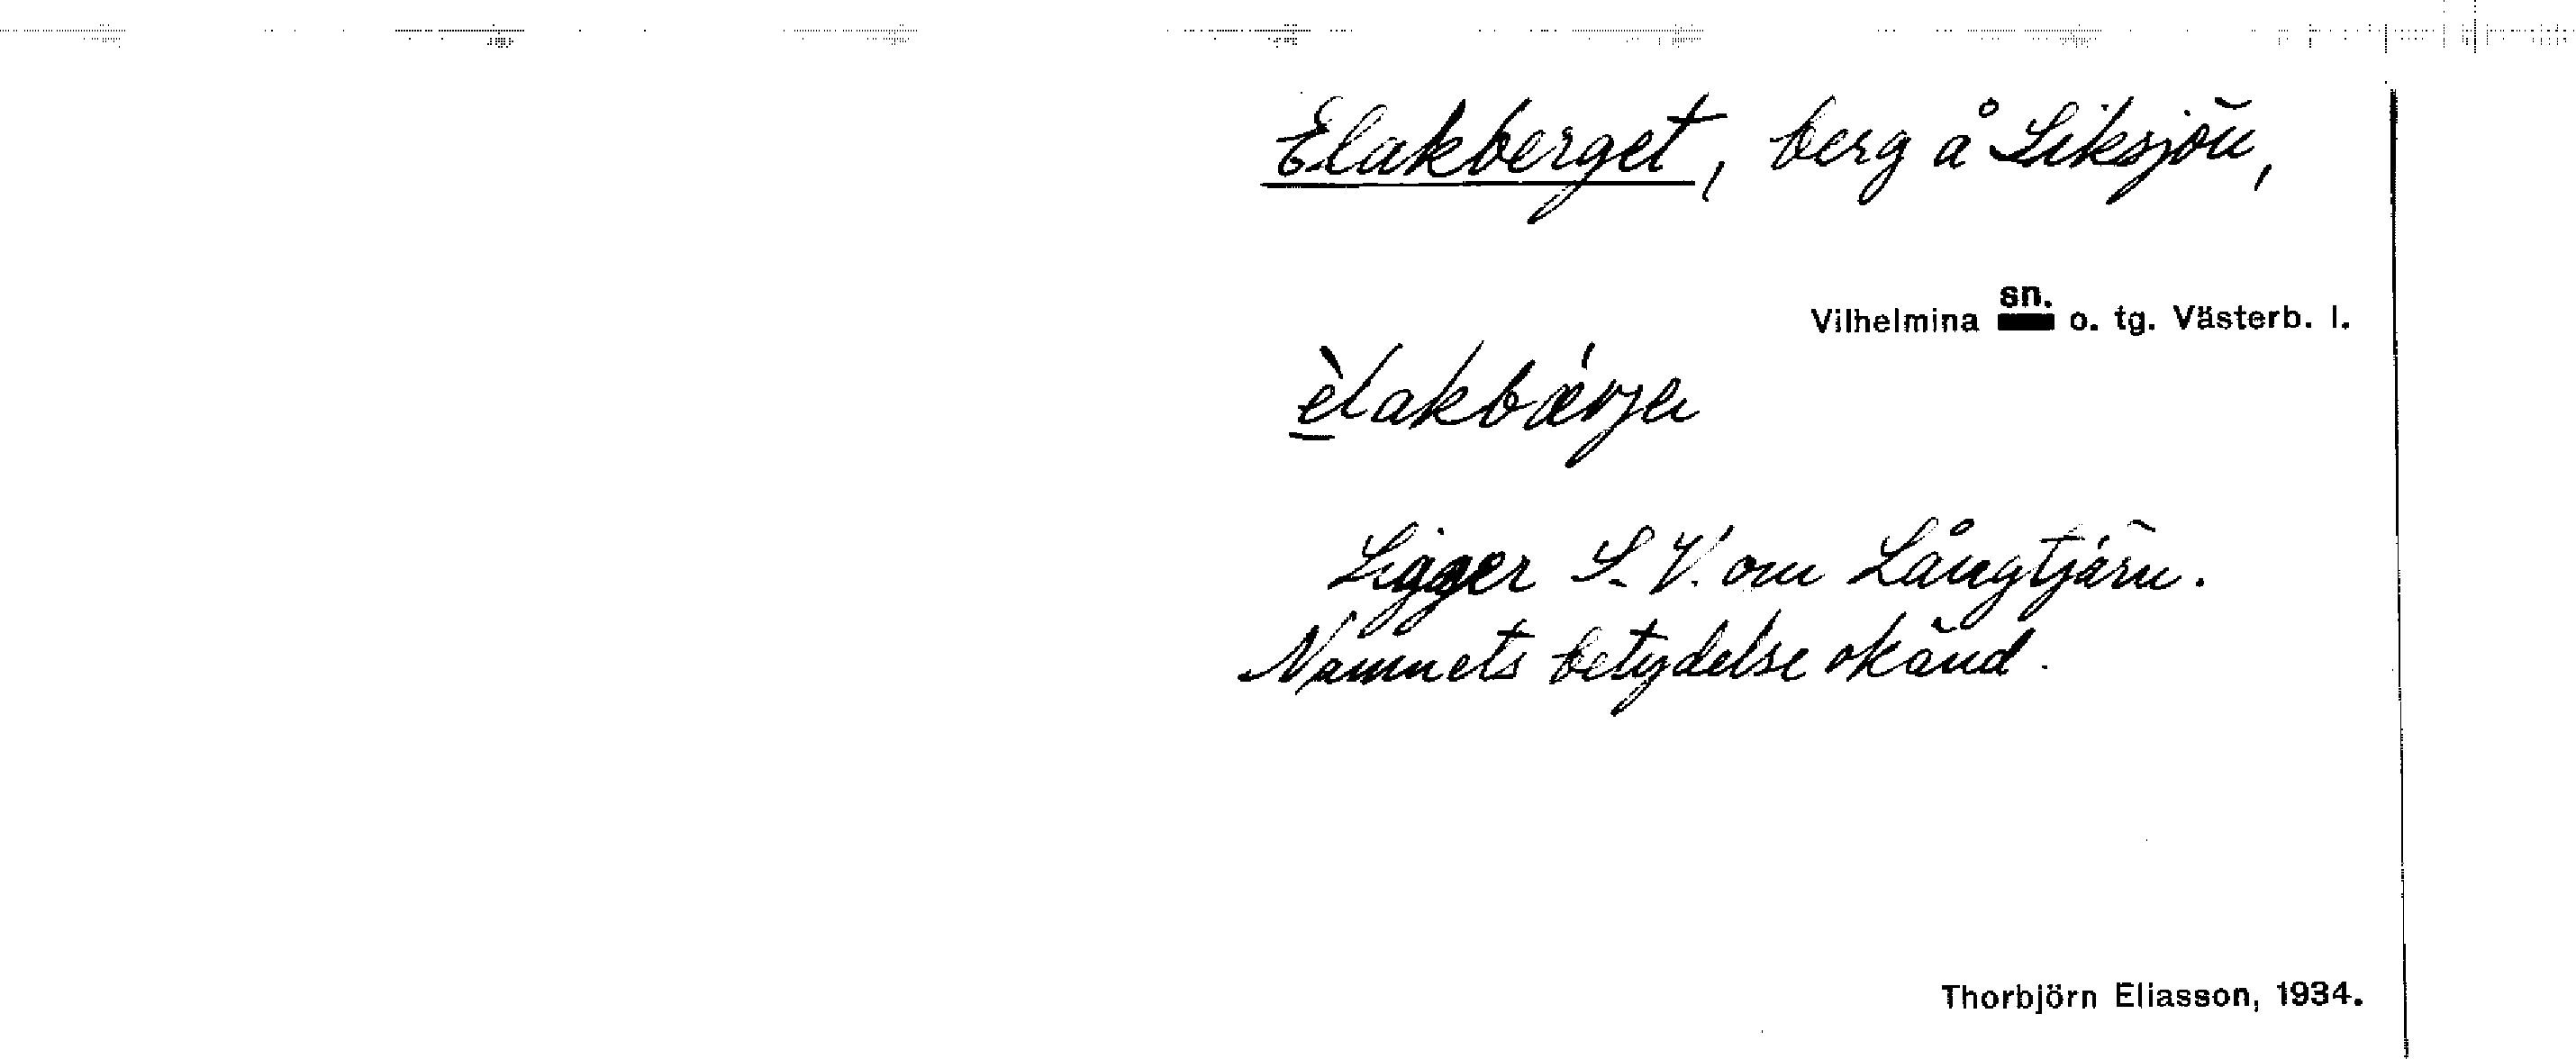 Elakberget, berg å Siksjön,
Vilhelmina sn. o. tg. Västerb. l.
èlakbǽrje
Ligger S.V. om Långtjärn.
Namnets betydelse okänd.
Thorbjörn Eliasson, 1934.